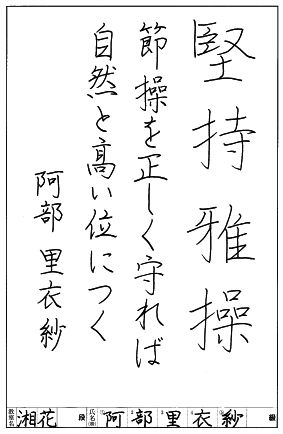 堅持雅操
節操を正しく守れば
自然と高い位につく
阿部里衣紗
教室名 湘花 段 氏名 阿部里衣紗 級